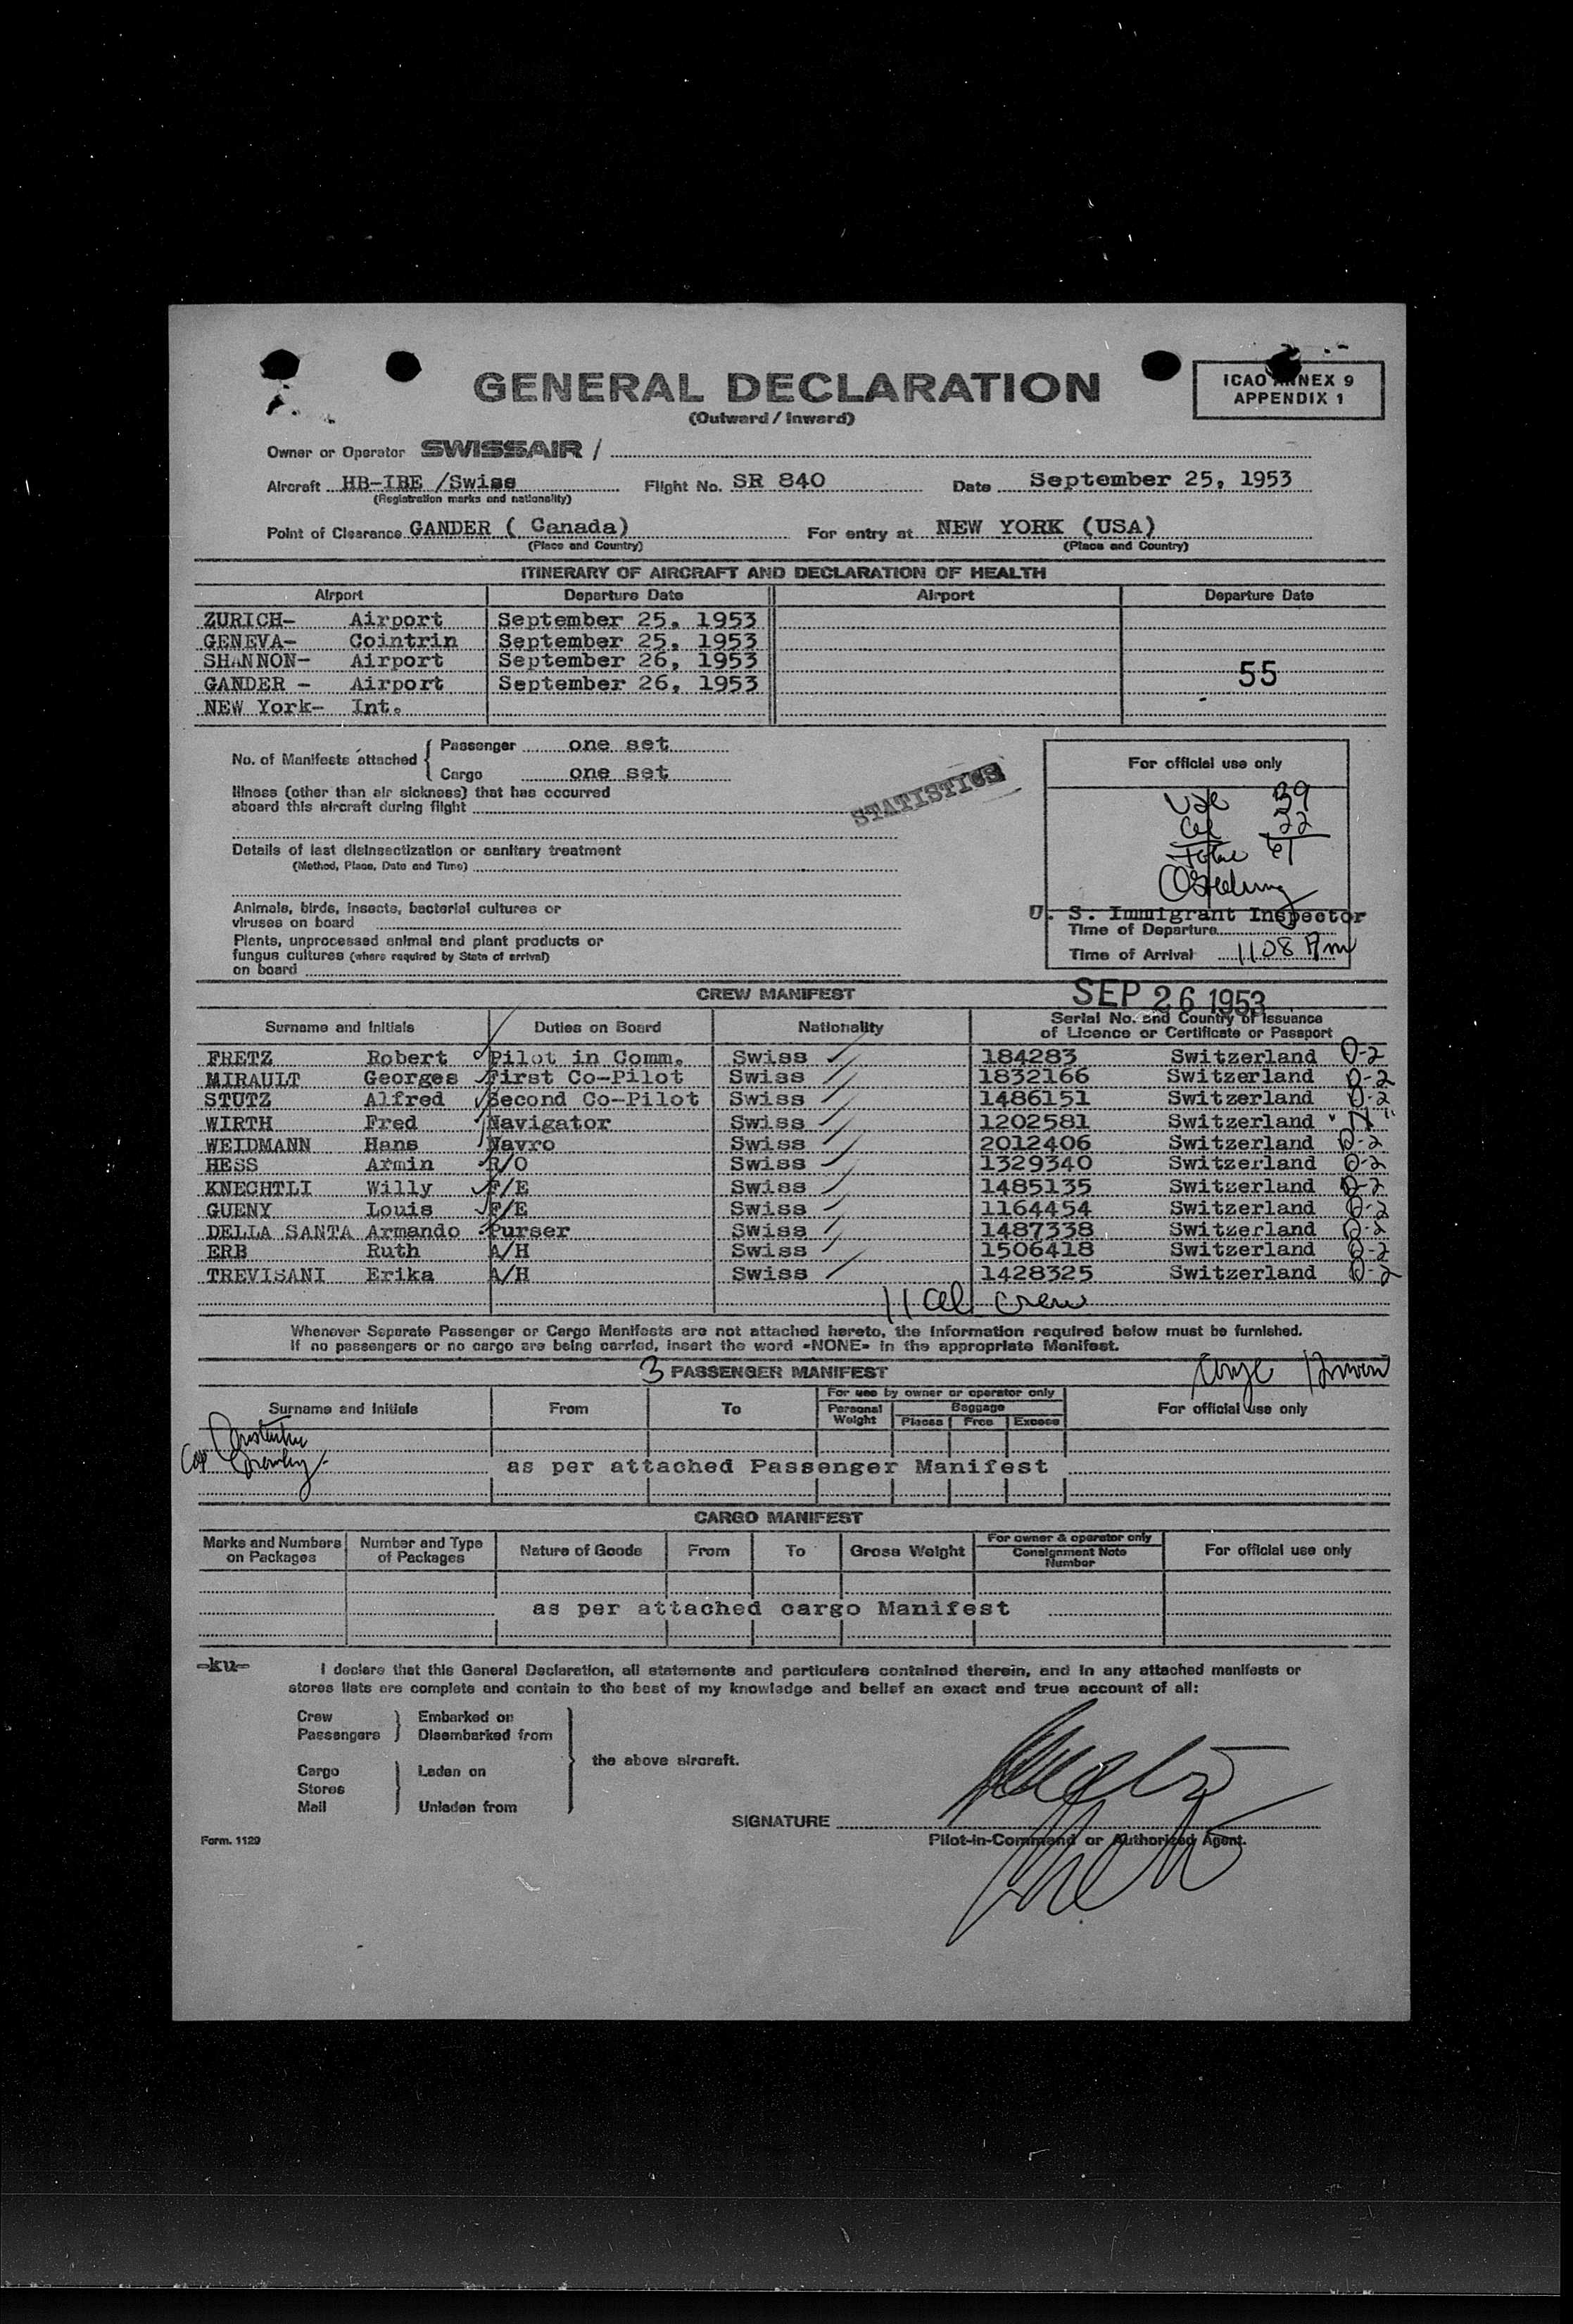 GENERAL DECLARATION
(Outward / Inward)
ICAO ANNEX 9
APPENDIX 1
Owner or Operator SWISSAIR /
Aircraft HB-IBE /Swiss Flight No. SR 840 Date September 25, 1953
(Registration marks and nationality)
Point of Clearance GANDER ( Canada) For entry at NEW YORK (USA)
(Place and Country) (Place and Country)
ITINERARY OF AIRCRAFT AND DECLARATION OF HEALTH
Airport Departure Date Airport Departure Date
ZURICH- Airport September 25, 1953
GENEVA- Cointrin September 25, 1953
SHANNON- Airport September 26, 1953
55
GANDER - Airport September 26, 1953
NEW York- Int.
No. of Manifests attached
Passenger one set
Cargo one set
For official use only
Illness (other than air sickness) that has occurred
aboard this aircraft during flight
STATISTICS
39
22
Total 61
Details of last disinsectization or sanitary treatment
(Method, Place, Date and Time)
Animals, birds, insects, bacterial cultures or
viruses on board
U. S. Immigrant Inspector
Time of Departure
Plants, unprocessed animal and plant products or
fungus cultures (where required by State of arrival)
on board
Time of Arrival 1108 Am
SEP 26 1953
CREW MANIFEST
Surname and Initials Duties on Board Nationality Serial No. and Country of Issuance
of Licence or Certificate or Passport
FRETZ Robert Pilot in Comm. Swiss 184283 Switzerland D-2
MIRAULT Georges First Co-Pilot Swiss 1832166 Switzerland D-2
STUTZ Alfred Second Co-Pilot Swiss 1486151 Switzerland D-2
WIRTH Fred Navigator Swiss 1202581 Switzerland
WEIDMANN Hans Navro Swiss 2012406 Switzerland D-2
HESS Armin R/O Swiss 1329340 Switzerland D-2
KNECHTLI Willy F/E Swiss 1485135 Switzerland D-2
GUENY Louis F/E Swiss 1164454 Switzerland D-2
DELLA SANTA Armando Purser Swiss 1487338 Switzerland D-2
ERB Ruth A/H Swiss 1506418 Switzerland D-2
TREVISANI Erika A/H Swiss 1428325 Switzerland D-2
11 crew
Whenever Separate Passenger or Cargo Manifests are not attached hereto, the information required below must be furnished.
If no passengers or no cargo are being carried, insert the word «NONE» in the appropriate Manifest.
3 PASSENGER MANIFEST
Surname and Initials From To For use by owner or operator only For official use only
Personal Weight Baggage
Pieces Free Excess
as per attached Passenger Manifest
CARGO MANIFEST
Marks and Numbers on Packages Number and Type of Packages Nature of Goods From To Gross Weight For owner & operator only
Consignment Note Number For official use only
as per attached cargo Manifest
-ku-
I declare that this General Declaration, all statements and particulars contained therein, and in any attached manifests or
stores lists are complete and contain to the best of my knowledge and belief an exact and true account of all:
Crew Embarked on
Passengers Disembarked from
the above aircraft.
Cargo Laden on
Stores
Mail Unladen from
SIGNATURE
Pilot-in-Command or Authorized Agent.
Form. 1129